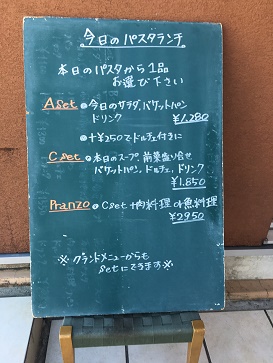 今日のパスタランチ
本日のパスタから1品
お選び下さい
Aset ●今日のサラダ、バケットパン
ドリンク ¥1,280
●+¥250でドルチェ付きに
Cset ●本日のスープ、前菜盛り合せ
バケットパン、ドルチェ、ドリンク
¥1,850
Pranzo ●Cset+肉料理or魚料理
¥2950
※グランドメニューからも
setにできます※